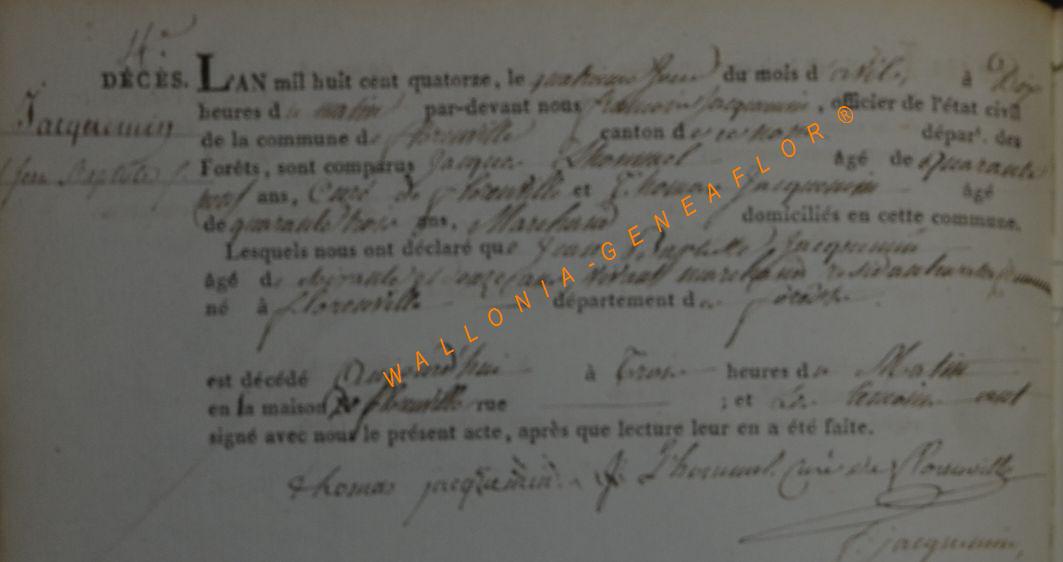 4e
DÉCÈS. L'AN mil huit cent quatorze, le quatrieme jour du mois d'avril, à Dix
Jacquemin
heures du matin par-devant nous francois Jacquemin, officier de l'état civil
de la commune de florenville canton de dépar.t des
Jean Baptiste
Forêts, sont comparus Jacques Lhommel âgé de quarante
neuf ans, Curé de florenville et Thomas Jacquemin âgé
de quarante trois ans, Marchand domiciliés en cette commune.
Lesquels nous ont déclaré que Jean Baptiste Jacquemin
âgé de soixante et onze ans vivant marchand
né à florenville département des forêts
est décédé Aujourd'hui à Trois heures du Matin
en la maison De florenville rue ; et Les temoins ont
signé avec nous le présent acte, après que lecture leur en a été faite.
thomas jacquemin J. Lhommel curé de florenville
jacquemin
WALLONIA-GENEAFLOR®